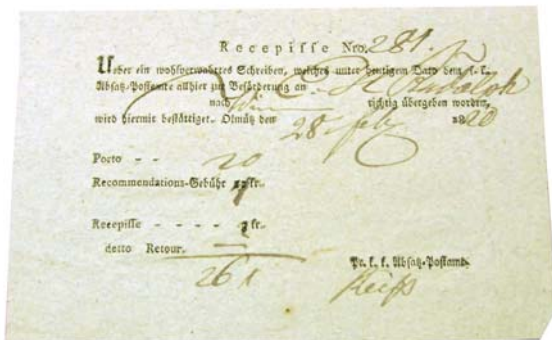 Recepisse Nro. 281.
Ueber ein wohlverwahrtes Schreiben, welches unter heutigem Dato dem k. k.
Absatz-Postamte allhier zur Beförderung an Rudolph
nach Wien richtig übergeben worden,
wird hiermit bestättiget. Olmütz den 28 feb 1820
Porto - - 20
Recommendations-Gebühr kr.
Recepisse - - - - kr.
detto Retour.
26 x
Pr. k. k. Absatz-Postamt.